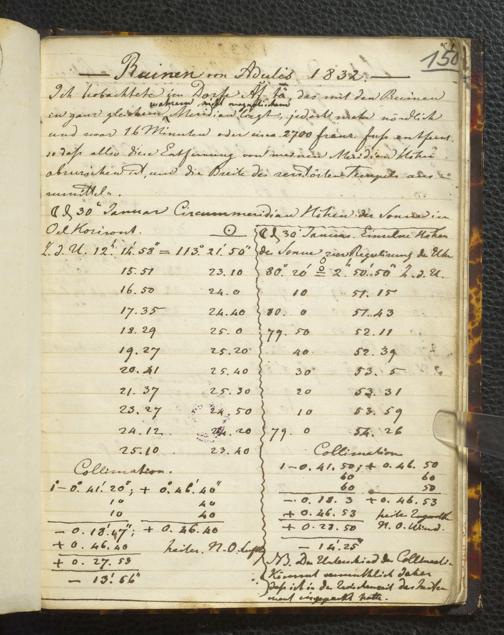 150
Ruinen von Adulis 1832
Ich beobachtete im Dorfe Aftä, das mit den Ruinen
in ganz gleichem Meridian liegt, jedoch mehr nördlich
und zwar 16 Minuten oder circa 2700 franz. Fuss entfernt
so dass alles diese Entfernung von meinen Meridian Höhen
und die Breite des zerstörten Tempels aus
30 Januar Circummeridian Höhen der Sonne im
Oel Horizont. ☉
Z. d. U. 12h 14' 58" = 113° 21' 50"
15. 51 23. 10
16. 50 24. 0
17. 35 24. 40
18. 29 25. 0
19. 27 25. 20
20. 41 25. 40
21. 37 25. 30
23. 27 24. 50
24. 12 24. 20
25. 10 23. 40
Collimation.
1° - 0° 41' 20"; + 0° 46' 40"
10 40
10 40
- 0. 18' 47"; + 0. 46. 40
+ 0. 46. 40 heiter. N.O.
+ 0. 27. 53
- 13' 56"
30 Januar. Einzelne Höhen
der Sonne zur Regulierung der Uhr
80° 20' = 2h 50' 50" Z. d. U.
10 51. 15
80. 0 51. 43
79. 50 52. 11
40 52. 39
30 53. 5
20 53. 31
10 53. 59
79. 0 54. 26
Collimation
1 - 0. 41. 50; + 0. 46. 50
60 60
60 50
- 0. 18. 3 + 0. 46. 53
+ 0. 46. 53 heiter
+ 0. 28. 50 N. O. Wind.
- 14' 25"
NB. Der Unterschied der Collimation
kommt vermuthlich daher
dass ich in der Zwischenzeit das Instru-
ment eingepackt hatte.